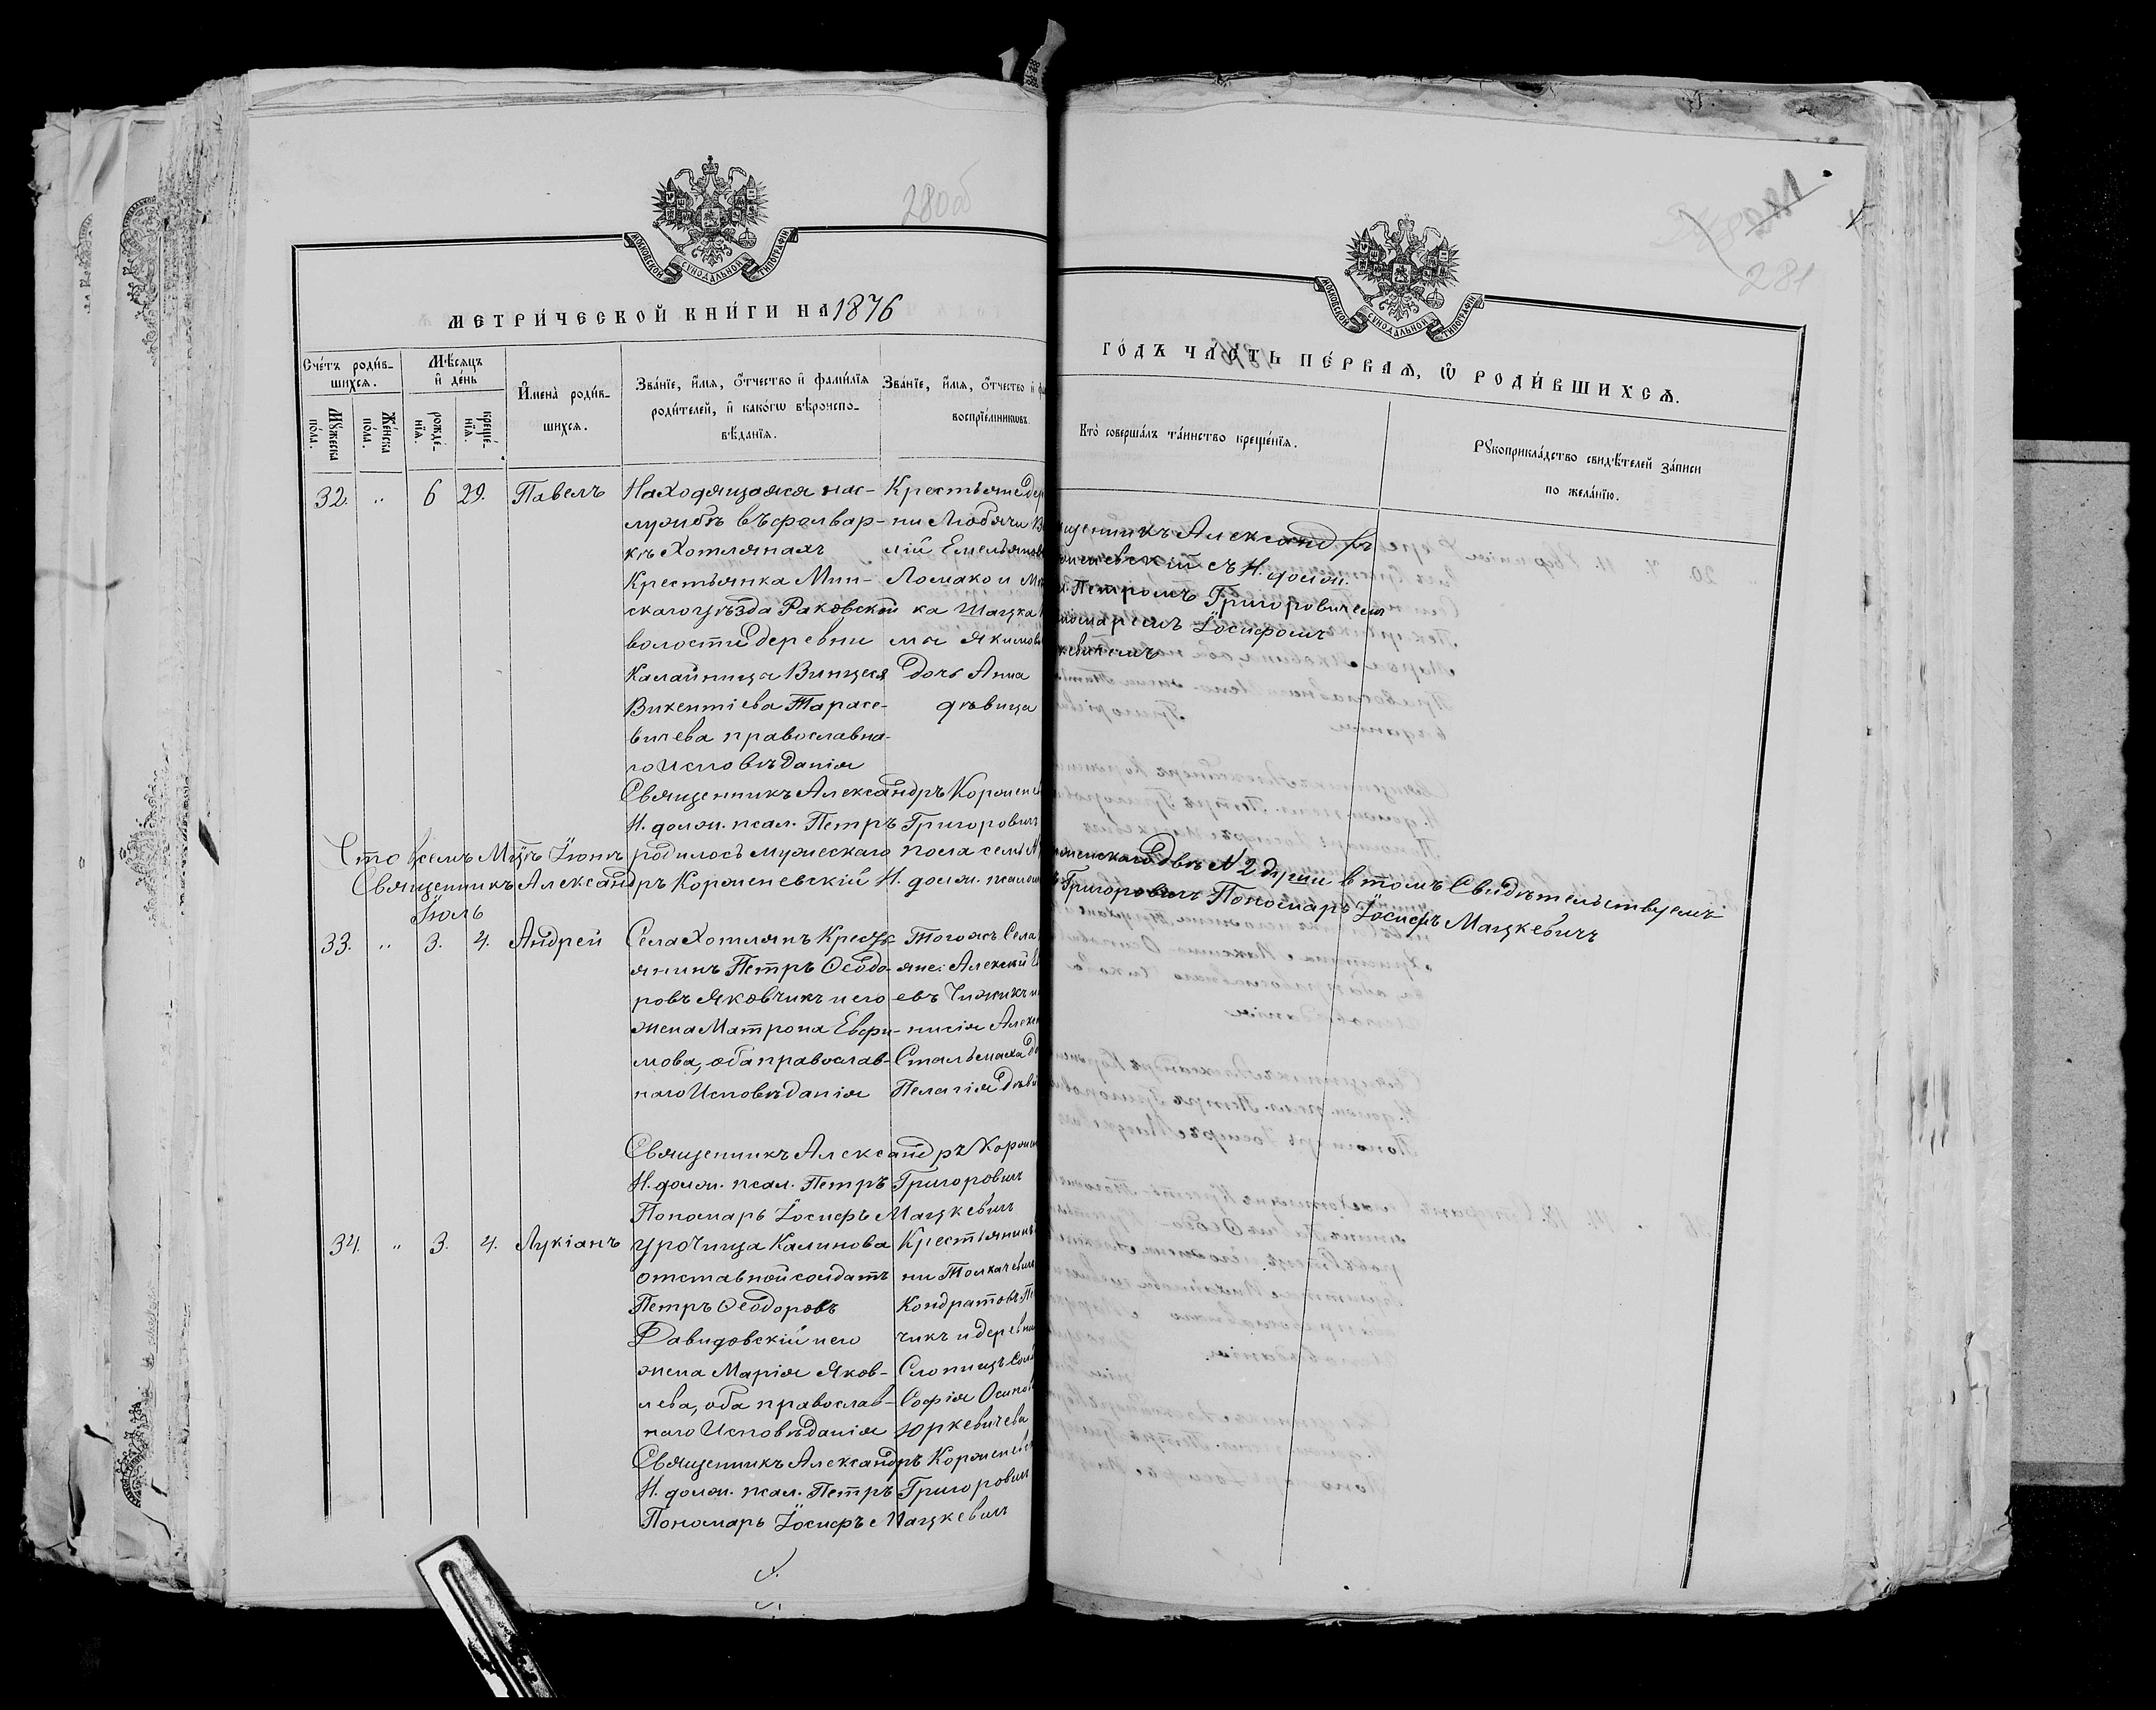 280об
281
МОСКОВСКОЙ СѴНОДАЛЬНОЙ ТИПОГРАФІИ
МЕТРИ́ЧЕСКОЙ КНИ́ГИ НА 1876
Сче́тъ роди́в-
шихсѧ.
Мѣ́сѧцъ
и҆ де́нь
Мꙋ́жеска
по́ла.
Же́нска
по́ла.
рожде́-
нїѧ.
креще́-
нїѧ.
И҆мена̀ роди́в-
шихсѧ.
Зва́нїе, и҆́мѧ, ѻ҆́тчество и҆ фами́лїѧ
роди́телей, и҆ како́гѡ вѣроиспо-
вѣ́данїѧ.
Зва́нїе, и҆́мѧ, ѻ҆́тчество и҆
воспрїе́мникѡвъ.
32. „ 6 29. Павелъ
Находящаяся на с-
лужбѣ въ фольвар-
кѣ Хотлянахъ
Крестьянка Мин-
скаго уѣзда Раковской
волости деревни
Калайница Винцеся
Викентіева Тарасе-
вичева православна-
го Исповѣданія
Крестьяне дер
ни Любячи
лій Емельянов
Ломако и М
ка Шацка
ма Якимов
дочь Анна
дѣвица
Священникъ Александръ Корженев
И. долж. псал. Петръ Григоровичъ
Что всемъ Мцѣ Іюнѣ родилось мужескаго пола семь
Священникъ Александръ Корженевскій И. долж. псалом
Іюль
33. „ 3. 4. Андрей
Села Хотлянъ Кресть-
янинъ Петръ Ѳеодо-
ровъ Яковчикъ и его
жена Матрона Евфи-
мова, оба православ-
наго Исповѣданія
Того жъ Села
яне: Алексѣй
евъ Чижикъ и
нисія Алексѣ
Стальмаха до
Пелагія дѣви
Священникъ Александръ Коржен
И. долж. псал. Петръ Григоровичъ
Пономарь Іосифъ Мацкевичъ
34. „ 3. 4. Лукіанъ
урочища Калинова
отставной солдатъ
Петръ Ѳеодоровъ
Давидовскій и его
жена Марія Яков-
лева, оба православ-
наго Исповѣданія
Крестьянинъ
ни Толкачевичъ
Кондратовъ
чикъ и деревни
Слопищъ Сол
Софія Осипов
Юркевичева
Священникъ Александръ Корженевс
И. долж. псал. Петръ Григоровичъ
Пономарь Іосифъ Мацкевичъ
МОСКОВСКОЙ СѴНОДАЛЬНОЙ ТИПОГРАФІИ
ГО́ДЪ ЧА́СТЬ ПЕ́РВАѦ, Ѡ҆ РОДИ́ВШИХСѦ.
Кто̀ соверша́лъ та́инство креще́нїѧ.
Рꙋкоприкла́дство свидѣ́телей за́писи
по жела́нїю.
щенникъ Александръ
женевскій съ И. долж.
Петромъ Григоровичемъ
номаремъ Іосифомъ
кевичемъ
женскаго двѣ №2 души в томъ Свидѣтельствуемъ
Григоровичъ Пономарь Іосифъ Мацкевичъ